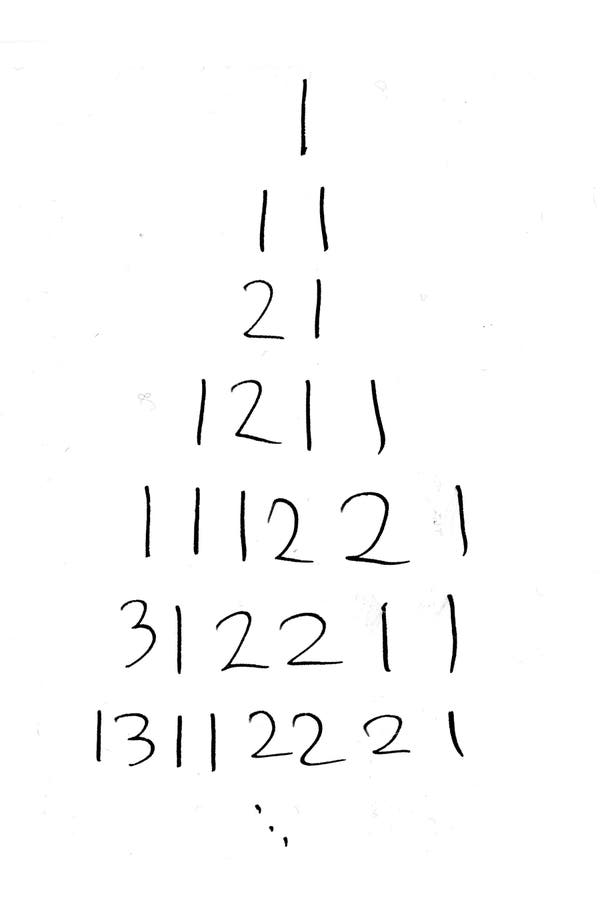 1
1 1
2 1
1 2 1 1
1 1 1 2 2 1
3 1 2 2 1 1
1 3 1 1 2 2 2 1
⋱